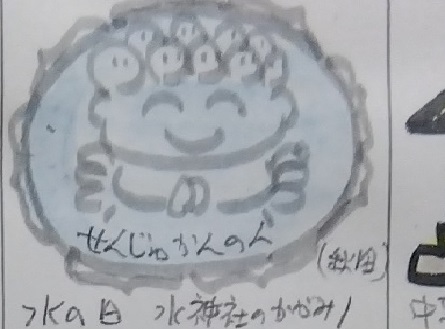 せんじゅかんのん
(秋田)
水の日 水神社のかがみ!
中